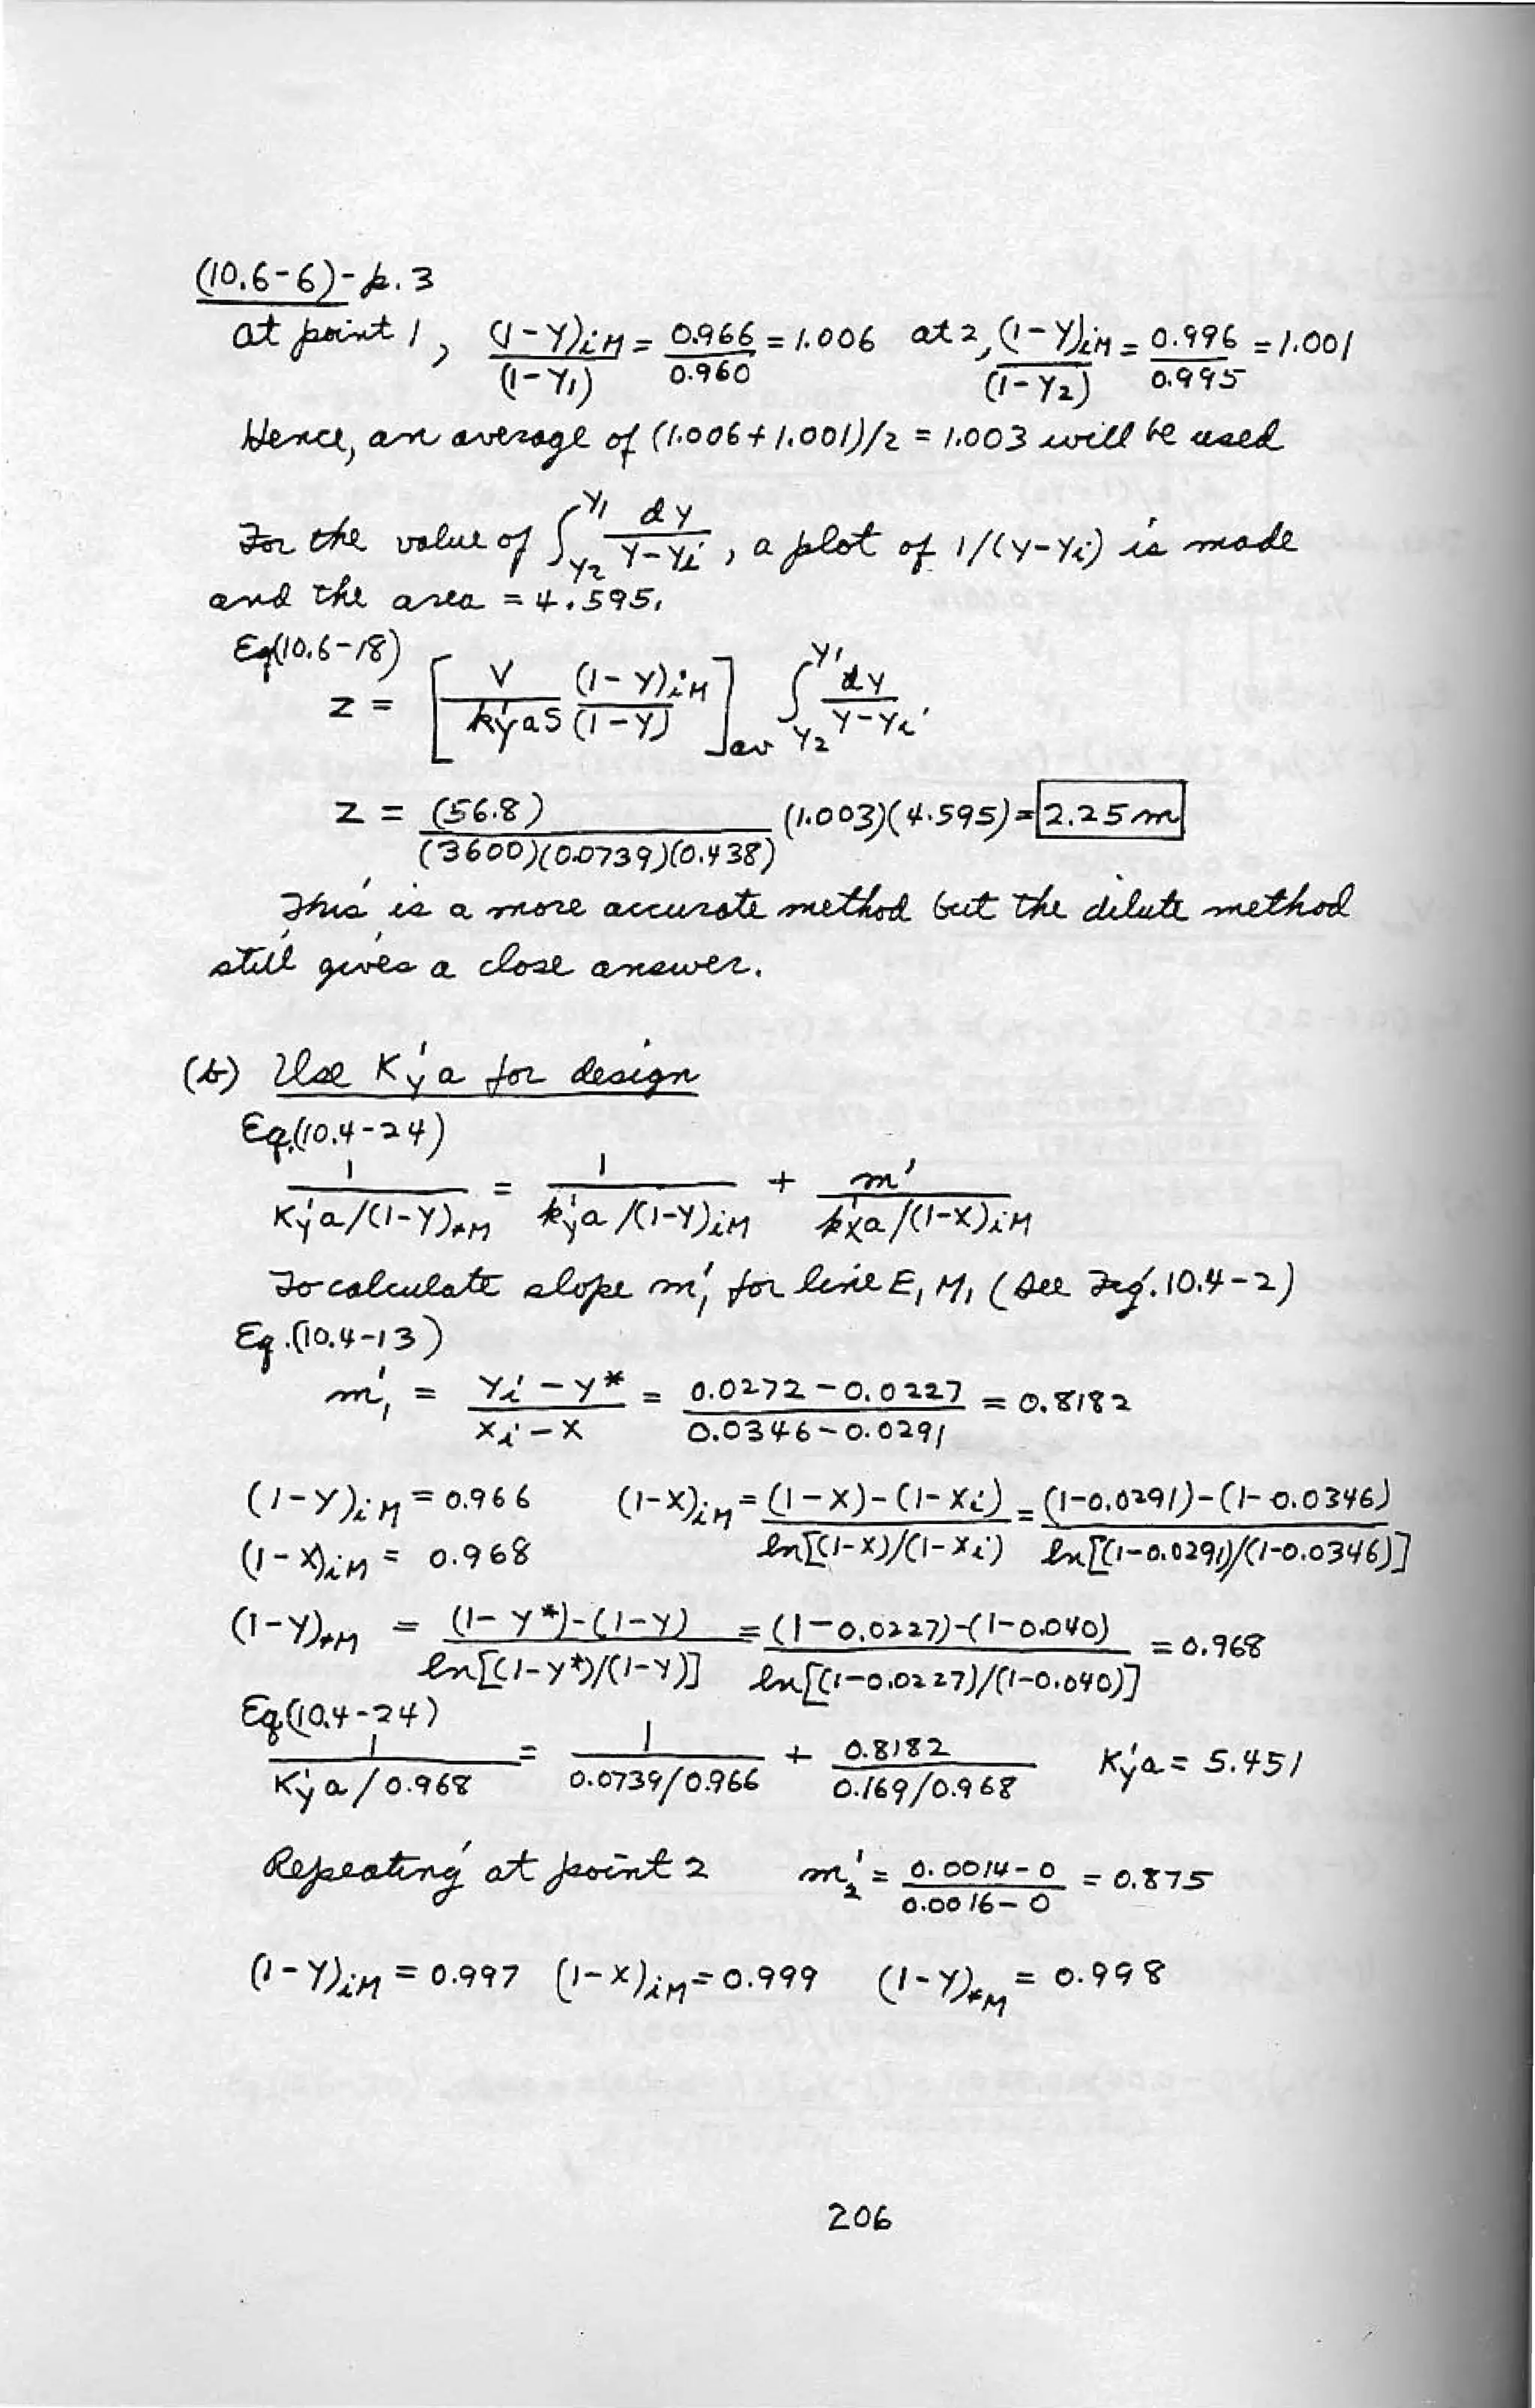 (10.6-6)-p.3
At point 1, (1-y)iM/(1-y1) = 0.966/0.960 = 1.006 at 2, (1-y)iM/(1-y2) = 0.996/0.995 = 1.001
Hence, an average of (1.006+1.001)/2 = 1.003 will be used
For the value of ∫y2^y1 dy/(y-yi), a plot of 1/(y-yi) is made
and the area = 4.595.
Eq(10.6-18)
z = [V/(k'yaS) (1-y)iM/(1-y)]av ∫y2^y1 dy/(y-yi)
z = (56.8)/((3600)(0.0739)(0.438)) (1.003)(4.595) = 2.25 m
This is a more accurate method but the dilute method
still gives a close answer.
(b) Use K'ya for design
Eq.(10.4-24)
1/(K'ya/(1-y)*M) = 1/(k'ya/(1-y)iM) + m'/(k'xa/(1-x)iM)
To calculate slope m'1 for line E1 M1 (See Fig. 10.4-2)
Eq.(10.4-13)
m'1 = (yi - y*)/(xi - x) = (0.0272 - 0.0227)/(0.0346 - 0.0291) = 0.8182
(1-y)iM = 0.966 (1-x)iM = ((1-x)-(1-xi))/(ln[(1-x)/(1-xi)) = ((1-0.0291)-(1-0.0346))/(ln[(1-0.0291)/(1-0.0346)])
(1-x)iM = 0.968
(1-y)*M = ((1-y*)-(1-y))/(ln[(1-y*)/(1-y)]) = ((1-0.0227)-(1-0.040))/(ln[(1-0.0227)/(1-0.040)]) = 0.968
Eq(10.4-24)
1/(K'ya/0.968) = 1/(0.0739/0.966) + 0.8182/(0.169/0.968) K'ya = 5.451
Repeating at point 2 m'2 = (0.0014-0)/(0.0016-0) = 0.875
(1-y)iM = 0.997 (1-x)iM = 0.999 (1-y)*M = 0.998
206